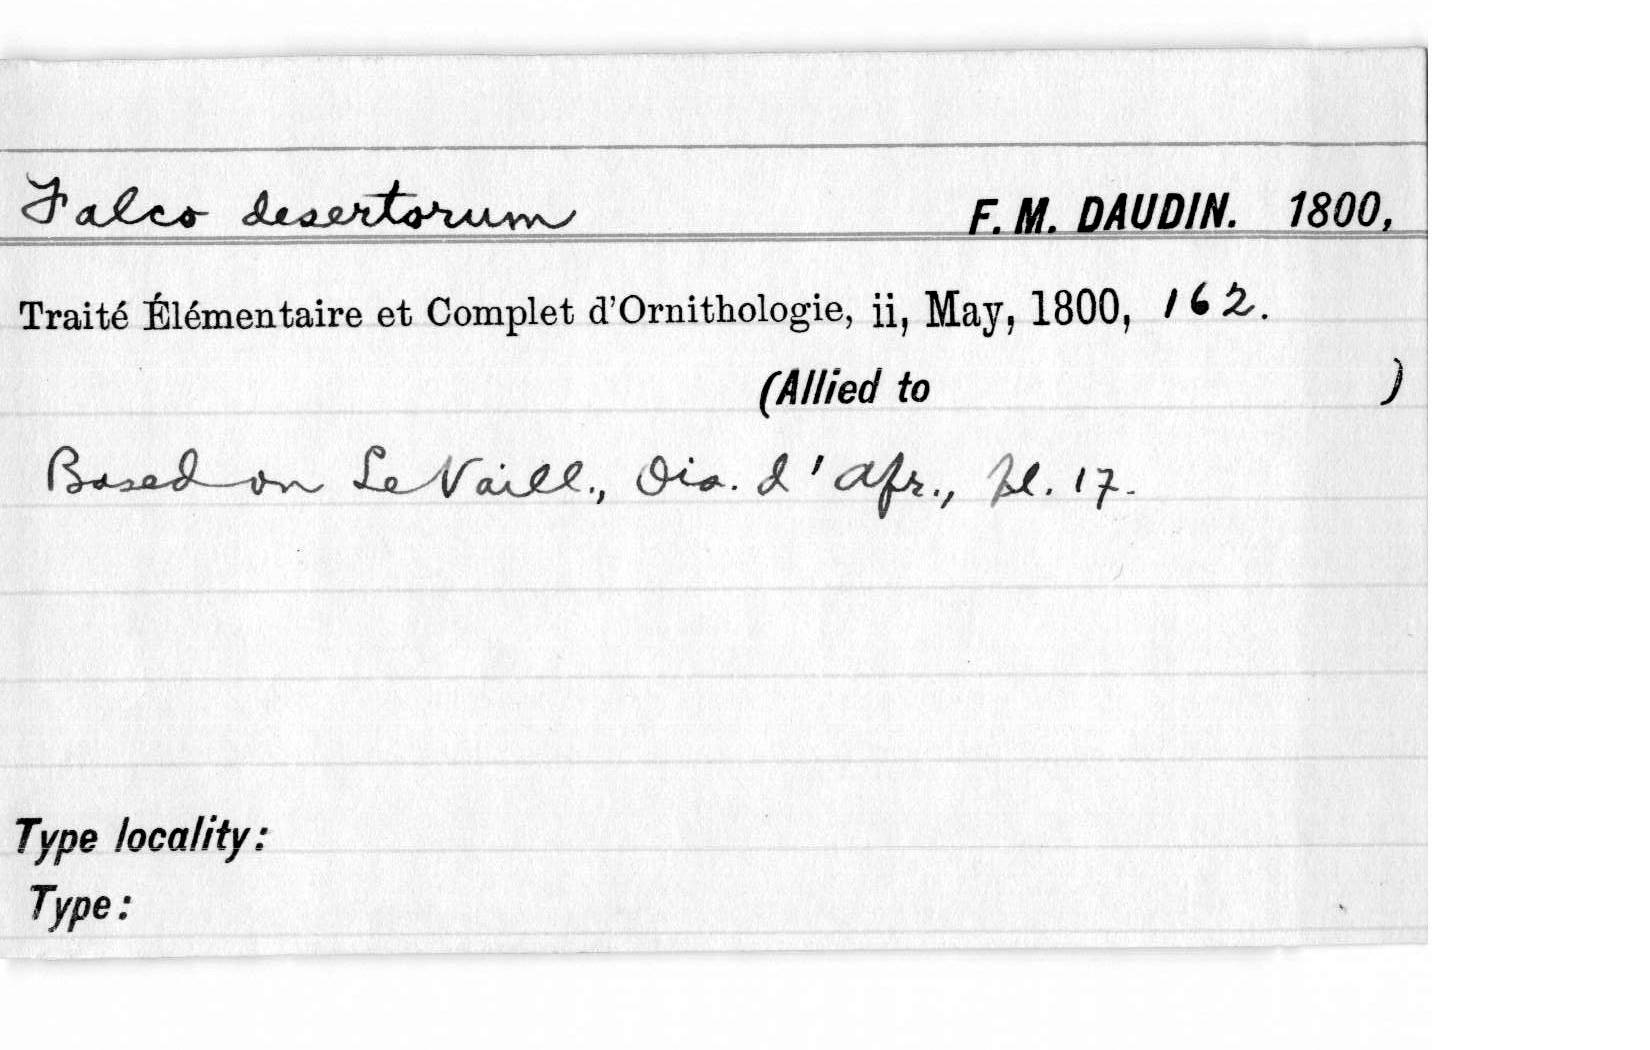 Falco desertorum F. M. DAUDIN. 1800,
Traité Élémentaire et Complet d'Ornithologie, ii, May, 1800, 162.
(Allied to )
Based on Le Vaill., Ois. d'Afr., pl. 17.
Type locality:
Type: